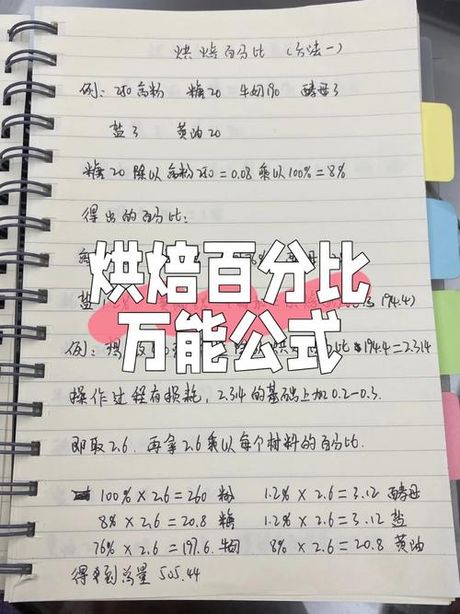 烘焙百分比（方法一）
例：250高粉 糖20 牛奶190 酵母3
盐3 黄油20
糖20除以高粉250=0.08乘以100%=8%
得出的百分比：
烘焙百分比
万能公式
194.4)
例：
194.4=2.314
操作过程有损耗，2.314的基础上加0.2-0.3.
即取2.6，再拿2.6乘以每个材料的百分比.
100%×2.6=260 粉 1.2%×2.6=3.12 酵母
8%×2.6=20.8 糖 1.2%×2.6=3.12 盐
76%×2.6=197.6.牛奶 8%×2.6=20.8 黄油
得到总量505.44